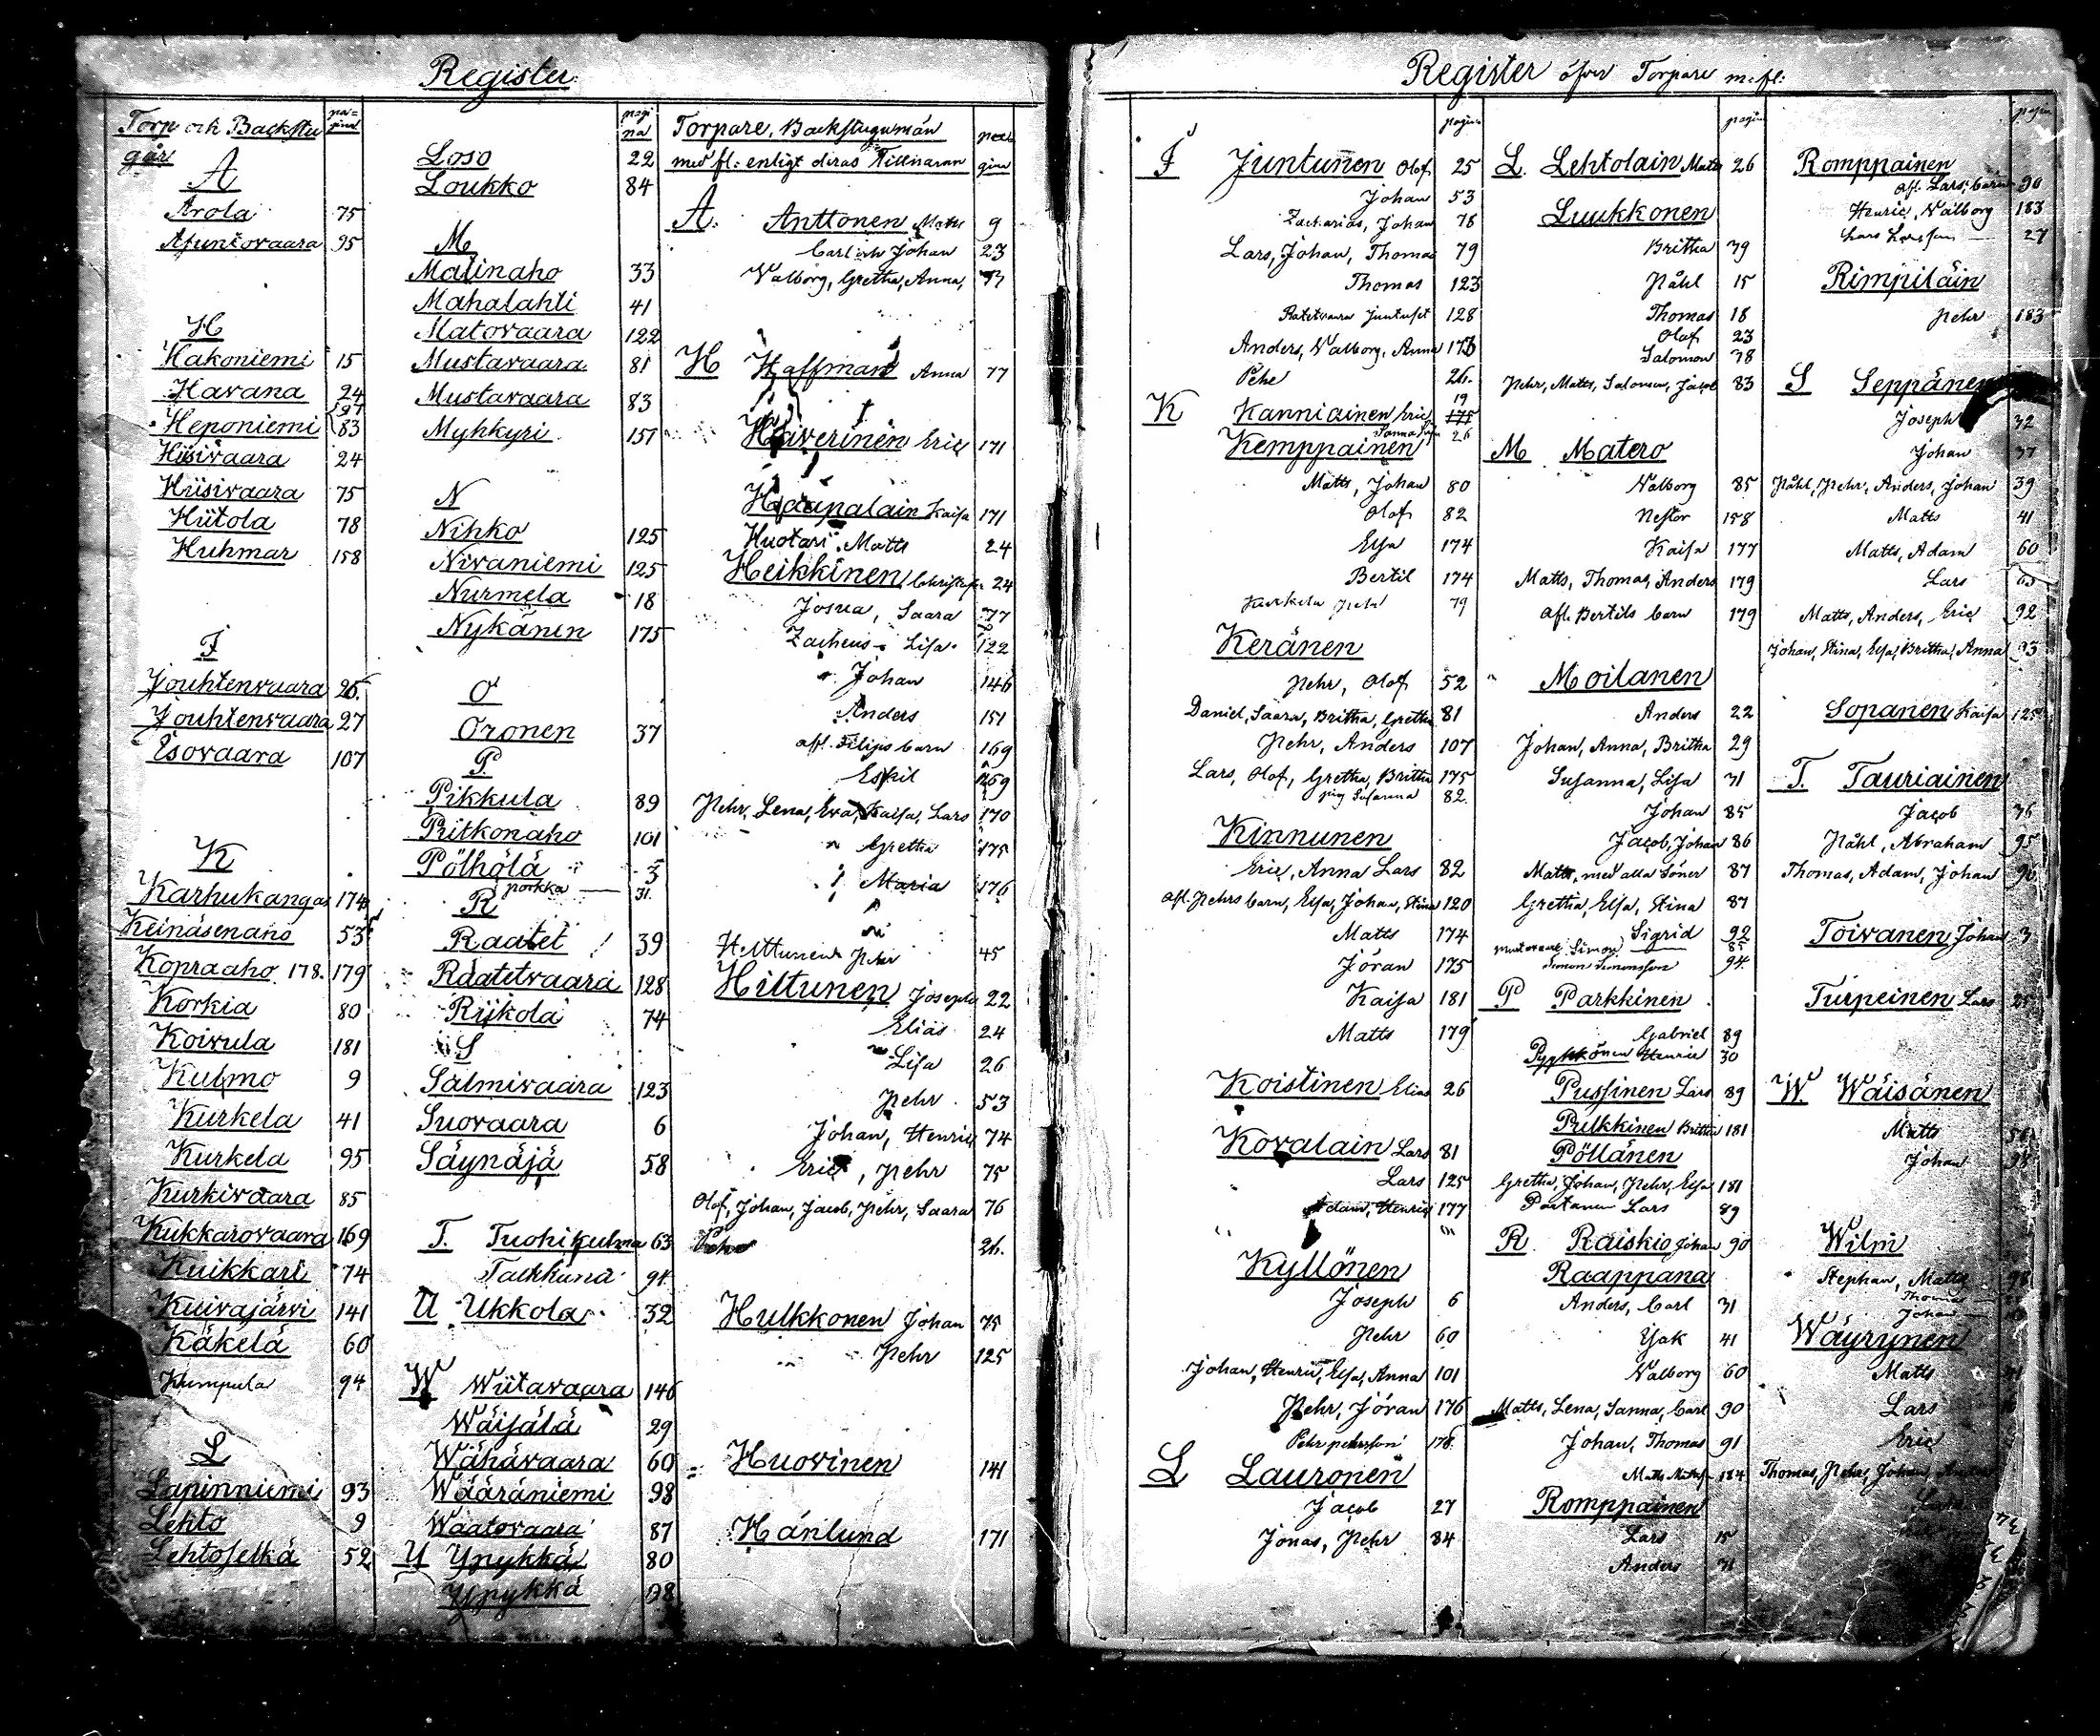 Register
Torp och Backstu
gur
pagina
A
Arola 75
Ajuntovaara 95
H
Hakoniemi 15
Havana 24
Heponiemi 83
Hiisivaara 24
Hiisivaara 75
Hiitola 78
Huhmar 158
J
Jouhtenvaara 26
Jouhtenvaara 27
Esovaara 107
K
Karhukangas 174
Keinäsenaho 53
Kopraaho 178. 179
Korkia 80
Koivula 181
Kulmo 9
Kurkela 41
Kurkela 95
Kurkivaara 85
Kukkarovaara 169
Kuikkari 74
Kuivajärvi 141
Käkelä 60
Kumpula 94
L
Lapinniemi 93
Lehto 9
Lehtoselkä 52
pagi
na
Loso 22
Loukko 84
M
Malinaho 33
Mahalahti 41
Matovaara 122
Mustavaara 81
Mustavaara 83
Myhkyri 157
N
Nihko 125
Nivaniemi 125
Nurmela 18
Nykänen 175
O
Oronen 37
P.
Pikkula 89
Pitkonaho 101
Pölhölä 3
porkka 31.
R
Raatet 39
Raatetvaara 128
Riikola 74
S
Salmivaara 123
Suovaara 6
Säynäjä 58
T. Tuohikulma 63
Talkkuna 94
U Ukkola 32
W Wiitavaara 146
Wäijälä 29
Wähävaara 60
Wääräniemi 98
Waatovaara 87
Y Ypykkä 80
Ypykkä 98
Torpare, Backstugumän
med fl: enligt deras Tillnamn
A. Anttonen Matts 9
Carl och Johan 23
Walborg, Gretha, Anna,
H Haffman Anna 77
Häverinen Eric 171
Haapalain Kaisa 171
Huotari Matts 24
Heikkinen Christofer 24
Josua, Saara 77
Zacheus Lisa 122
Johan 146
Anders 151
afl. Filips barn 169
Eskil 169
Pehr, Lena, Eva, Kaisa, Lars 170
Gretha 175
Maria 176
Hiltunen Pehr 45
Hiltunen Joseph 22
Elias 24
Lisa 26
Pehr 53
Johan, Henric 74
Eric, Pehr 75
Olof, Johan, Jacob, Pehr, Saara 76
26.
Hulkkonen Johan 75
Pehr 125
Huovinen 141
Hänlund 171
Register öfver Torpare m: fl:
pagina
J Juntunen Olof 25
Johan 53
Zacharias, Johan 78
Lars, Johan, Thomas 79
Thomas 123
Raatetvaara 128
Anders, Walborg, Anna 173
Pehr 26.
K Kanniainen Eric 19
175
Kemppainen 26
Matts, Johan 80
Olof 82
Elsa 174
Bertil 174
Kurkela Pehr 79
Keränen
Pehr, Olof 52
Daniel, Saara, Britha, Gretha 81
Pehr, Anders 107
Lars, Olof, Gretha, Britha 175
Susanna 82.
Kinnunen
Eric, Anna Lars 82
afl. Pehrs barn, Elsa, Johan, Stina 120
Matts 174
Jöran 175
Kaisa 181
Matts 179
Koistinen Elias 26
Kovalain Lars 81
Lars 125
Adam, Henric 177
Kyllönen
Joseph 6
Pehr 60
Johan, Henric, Elsa, Anna 101
Pehr, Jöran 176
Pehr pehrsson 176
L Lauronen
Jacob 27
Jonas, Pehr 84
pagina
L. Lehtolain Matts 26
Luukkonen
Britha 39
Påhl 15
Thomas 18
Olof 23
Salomon 38
Pehr, Matts, Salomon, Jacob 83
M Matero
Walborg 85
Nestor 158
Kaisa 177
Matts, Thomas, Anders 179
afl. Bertils barn 179
Moilanen
Anders 22
Johan, Anna, Britha 29
Susanna, Lisa 31
Johan 85
Jacob, Johan 86
Matts, med alla söner 87
Gretha, Elsa, Stina 87
Sigrid 92
Simon 85
Simon Simonsson 94.
P Parkkinen
Gabriel 89
Pyykkönen Henric 30
Pussinen Lars 89
Pulkkinen Britha 181
Pöllänen
Gretha, Johan, Pehr, Elsa 181
Partanen Lars 89
R Raiskio Johan 90
Raappana
Anders, Carl 31
Isak 41
Walborg 60
Matts, Lena, Sanna, Carl 90
Johan, Thomas 91
184
Romppainen
Lars 15
Anders 31
Romppainen
afl. Lars barn 90
Henric, Walborg 183
Lars Larsson 27
Rimpiläin
Pehr 183
S Seppänen
Joseph 32
Johan 37
Påhl, Pehr, Anders, Johan 39
Matts 41
Matts, Adam 60
Lars 63
Matts, Anders, Eric 92
Johan, Stina, Elsa, Britha, Anna 93
Sopanen Kaisa 125
T. Tauriainen
Jacob
Påhl, Abraham 95
Thomas, Adam, Johan 96
Toivanen Johan 3
Turpeinen Lars
W Wäisänen
Matts
Johan 98
Wilmi
Stephan, Matts 98
Thomas
Johan
Wäyrynen
Matts
Lars
Eric
Thomas, Pehr, Johan